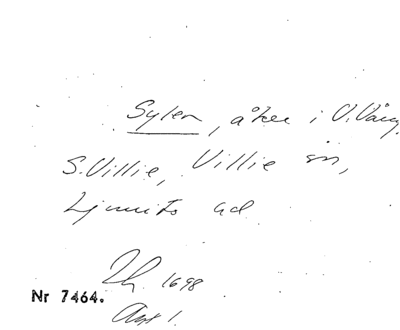 Sylen, åker i V. Vång,
S. Villie, Villie sn,
Ljunits hd
1698
Nr 7464.
Akt 1.